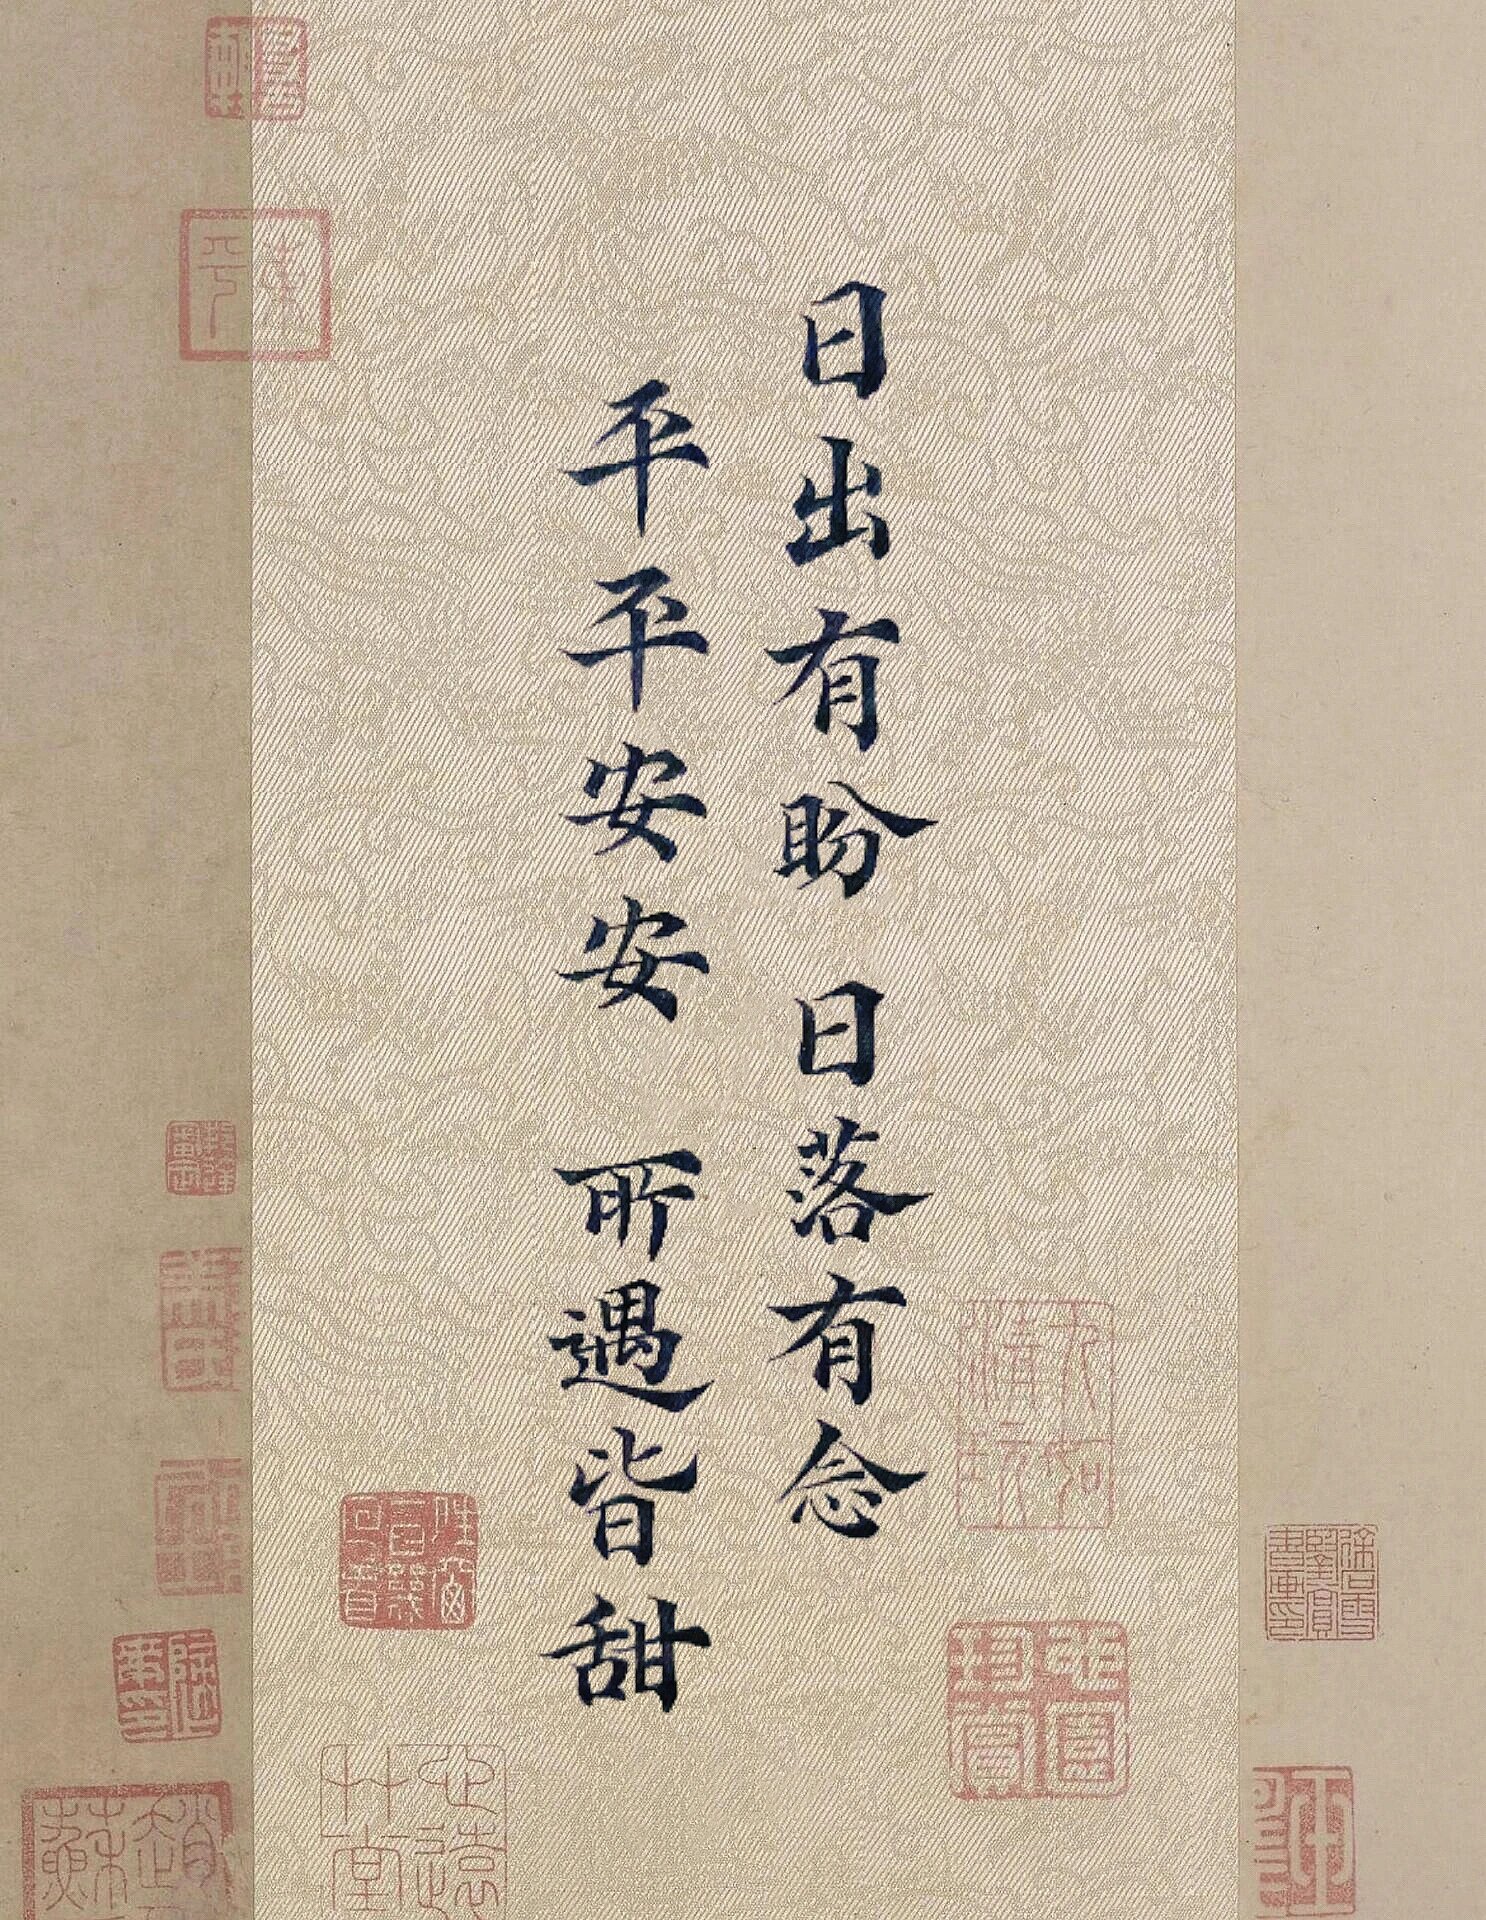 日出有盼 日落有念
平平安安 所遇皆甜